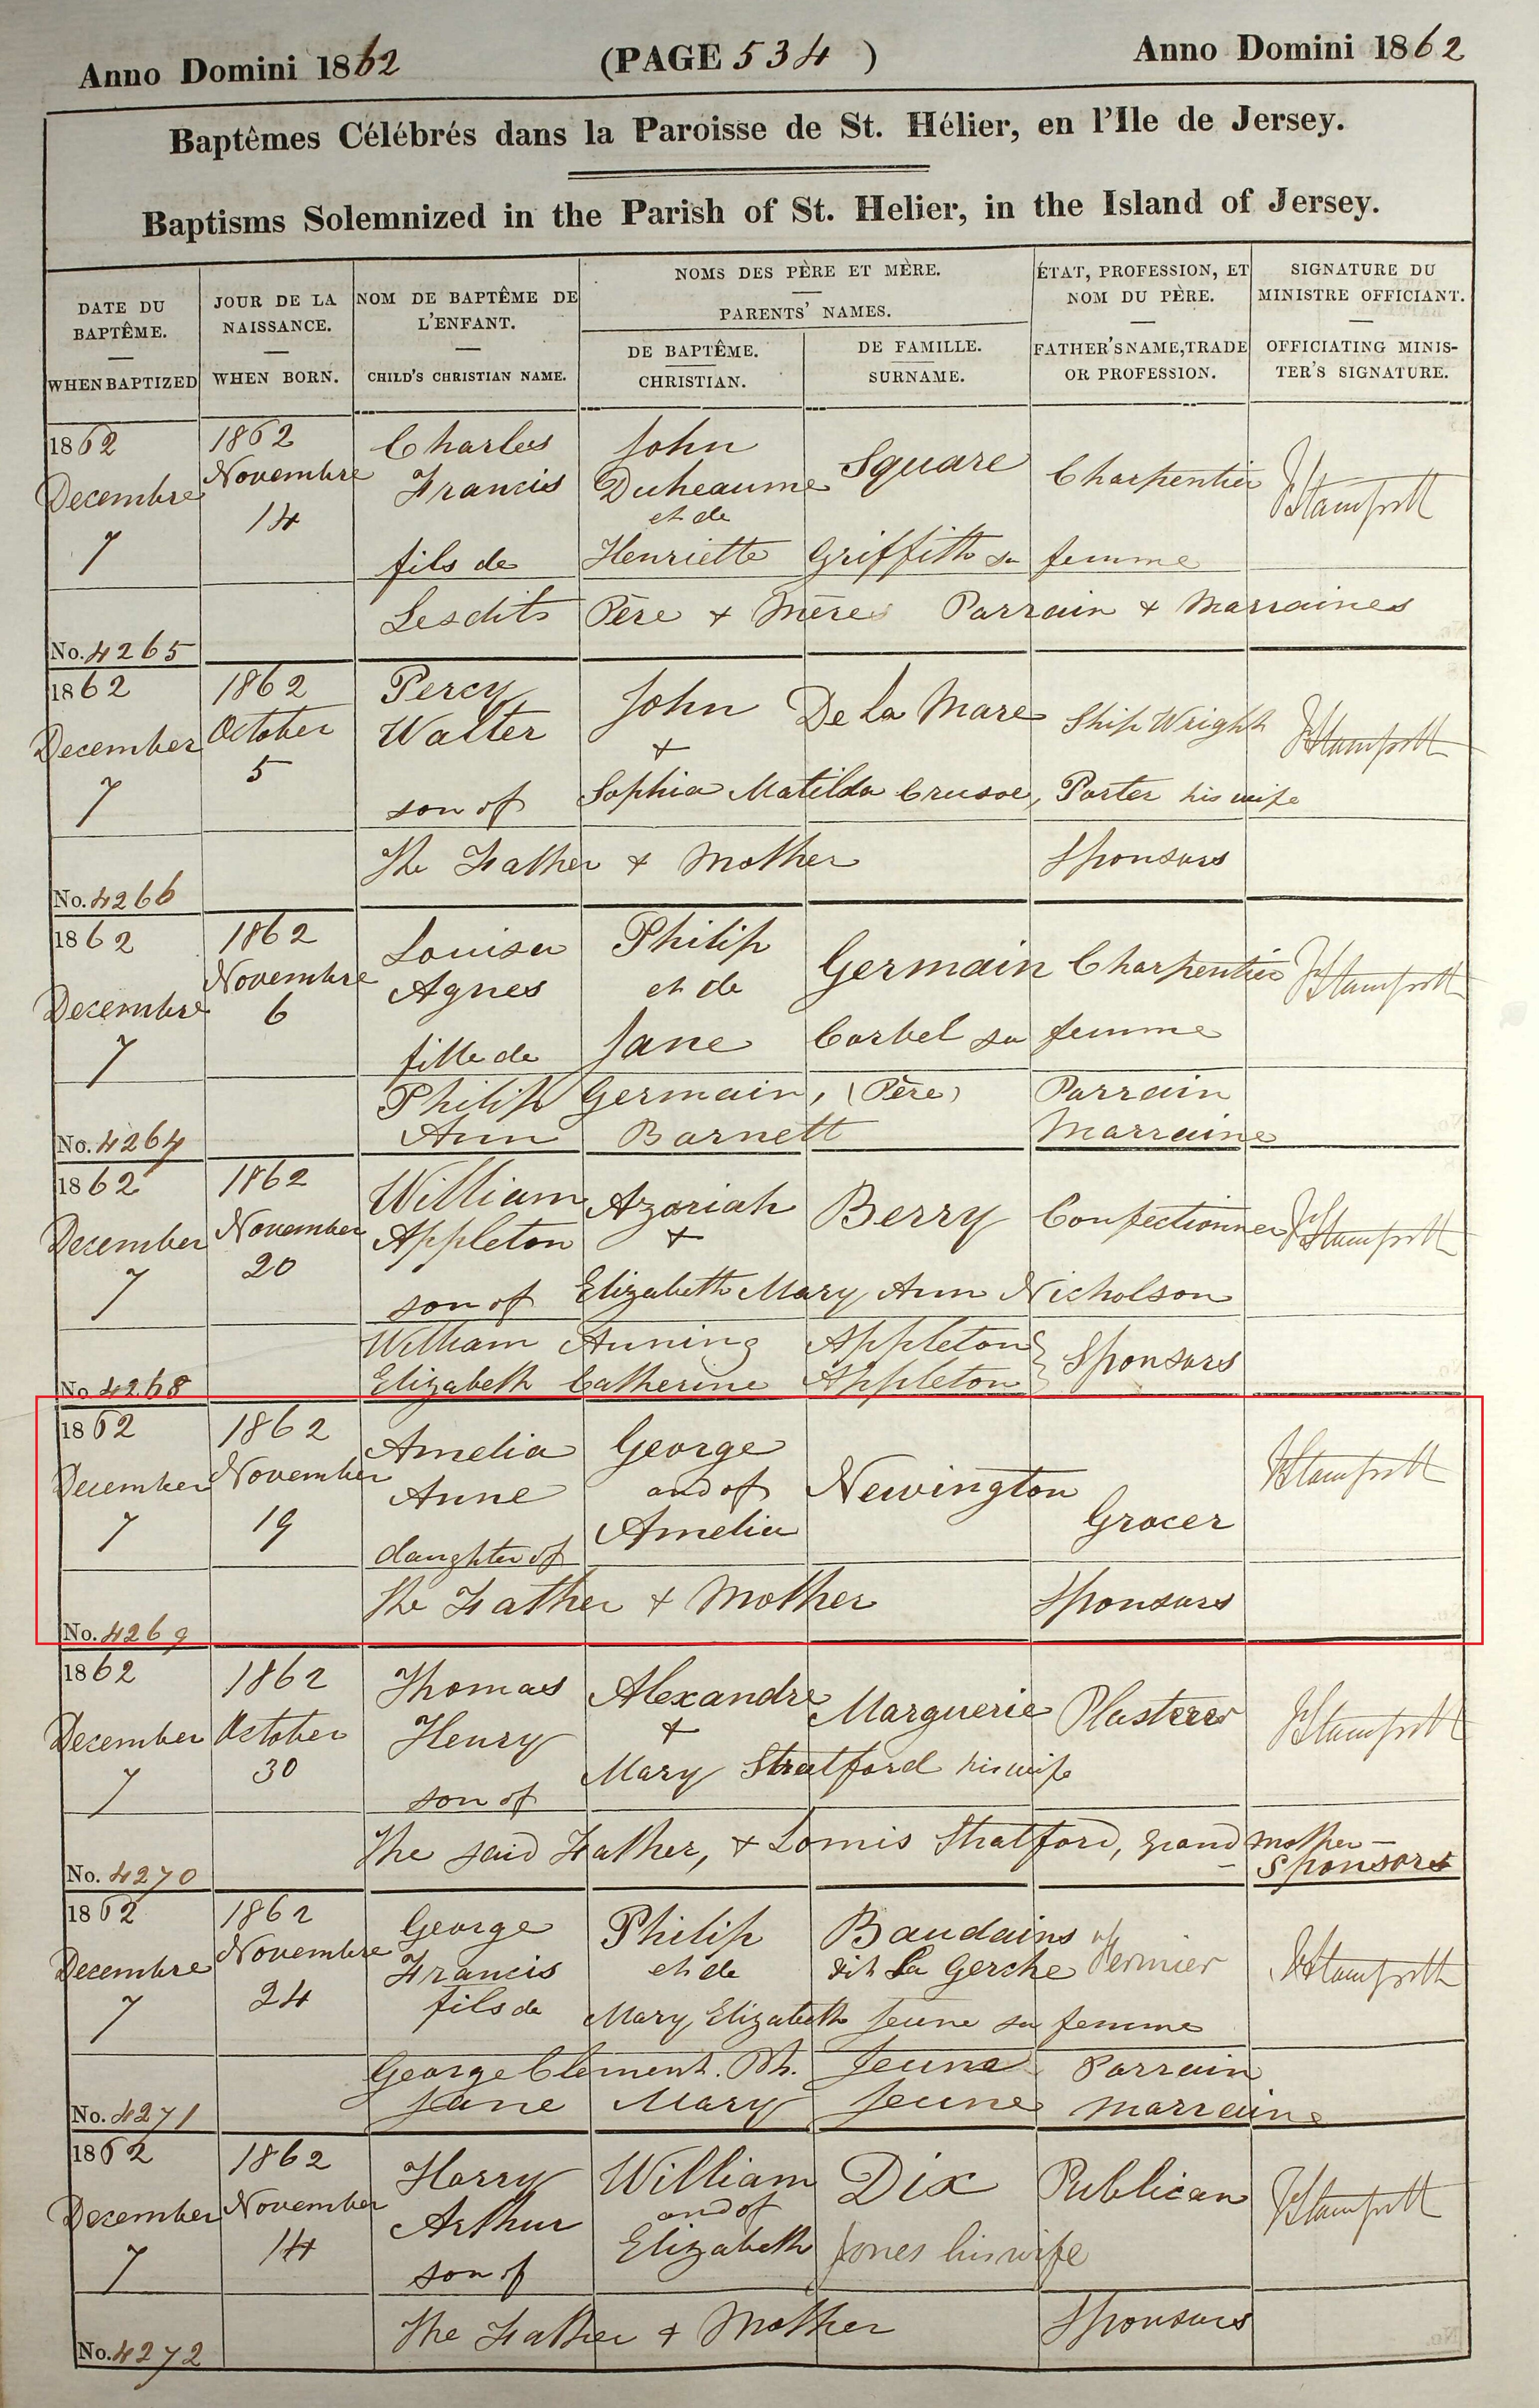 Anno Domini 1862 (PAGE 534 ) Anno Domini 1862
Baptêmes Célébrés dans la Paroisse de St. Hélier, en l'Ile de Jersey.
Baptisms Solemnized in the Parish of St. Helier, in the Island of Jersey.
DATE DU BAPTÊME.
WHEN BAPTIZED
JOUR DE LA NAISSANCE.
WHEN BORN.
NOM DE BAPTÊME DE L'ENFANT.
CHILD'S CHRISTIAN NAME.
NOMS DES PÈRE ET MÈRE.
PARENTS' NAMES.
DE BAPTÊME.
CHRISTIAN.
DE FAMILLE.
SURNAME.
ÉTAT, PROFESSION, ET NOM DU PÈRE.
FATHER'S NAME, TRADE OR PROFESSION.
SIGNATURE DU MINISTRE OFFICIANT.
OFFICIATING MINISTER'S SIGNATURE.
1862 1862 Charles John
Decembre Novembre Francis Duheaume Square Charpentier
7 14 et de
fils de Henriette Griffith sa femme
Lesdits Père + Mères Parrain + Marraines
No. 4265
1862 1862 Percy John De la Mare Ship Wright
December October Walter +
7 5 son of Sophia Matilda Crusoe, Porter his wife
The Father + Mother Sponsors
No. 4266
1862 1862 Louisa Philip Germain Charpentier
Decembre Novembre Agnes et de
7 6 fille de Jane Corbel sa femme
Philip Germain, (Père) Parrain
Ann Barnett Marraine
No. 4267
1862 1862 William Azariah Berry Confectionner
December November Appleton +
7 20 son of Elizabeth Mary Ann Nicholson
William Auning Appleton } Sponsors
Elizabeth Catherine Appleton
No. 4268
1862 1862 Amelia George
December November Anne and of Newington
7 19 Amelia Grocer
daughter of
The Father + Mother Sponsors
No. 4269
1862 1862 Thomas Alexandre Marguerie Plasterer
December October Henry +
7 30 son of Mary Stratford his wife
The said Father, + Stratford, grand mother - Sponsors
No. 4270
1862 1862 George Philip Baudains
Decembre Novembre Francis et de dit La Gerche
7 24 fils de Mary Elizabeth Jeune sa femme
George Clement. Ph. Jeune Parrain
Jane Mary Jeune Marraine
No. 4271
1862 1862 Harry William Dix Publican
December November Arthur and of
7 14 son of Elizabeth Jones his wife
The Father + Mother Sponsors
No. 4272